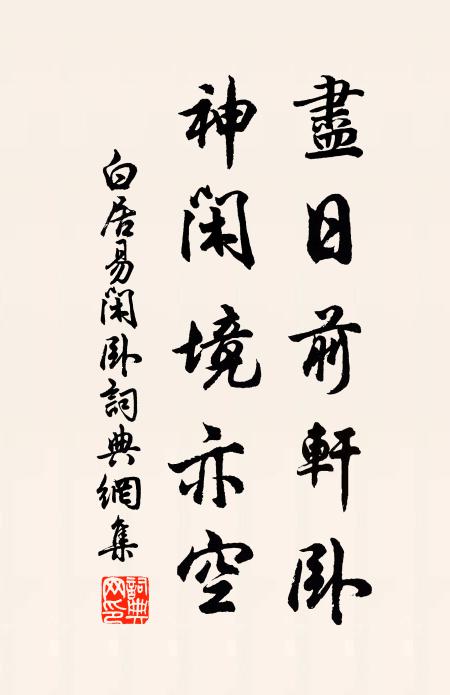 盡日前軒卧
神閑境亦空
白居易閑卧詞典網集
詞典網印